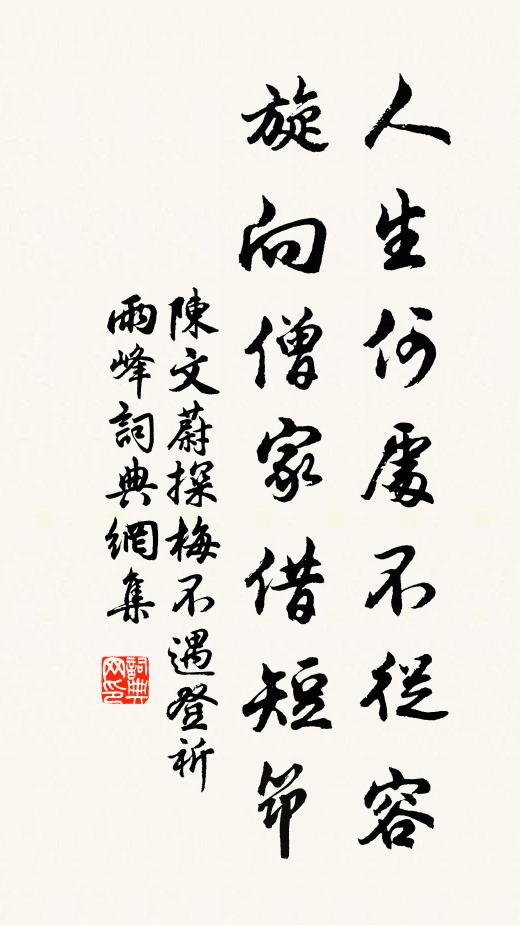 人生何處不從容
旋向僧家借短筇
陳文蔚探梅不遇登祈
雨峰詞典網集
詞典
网印